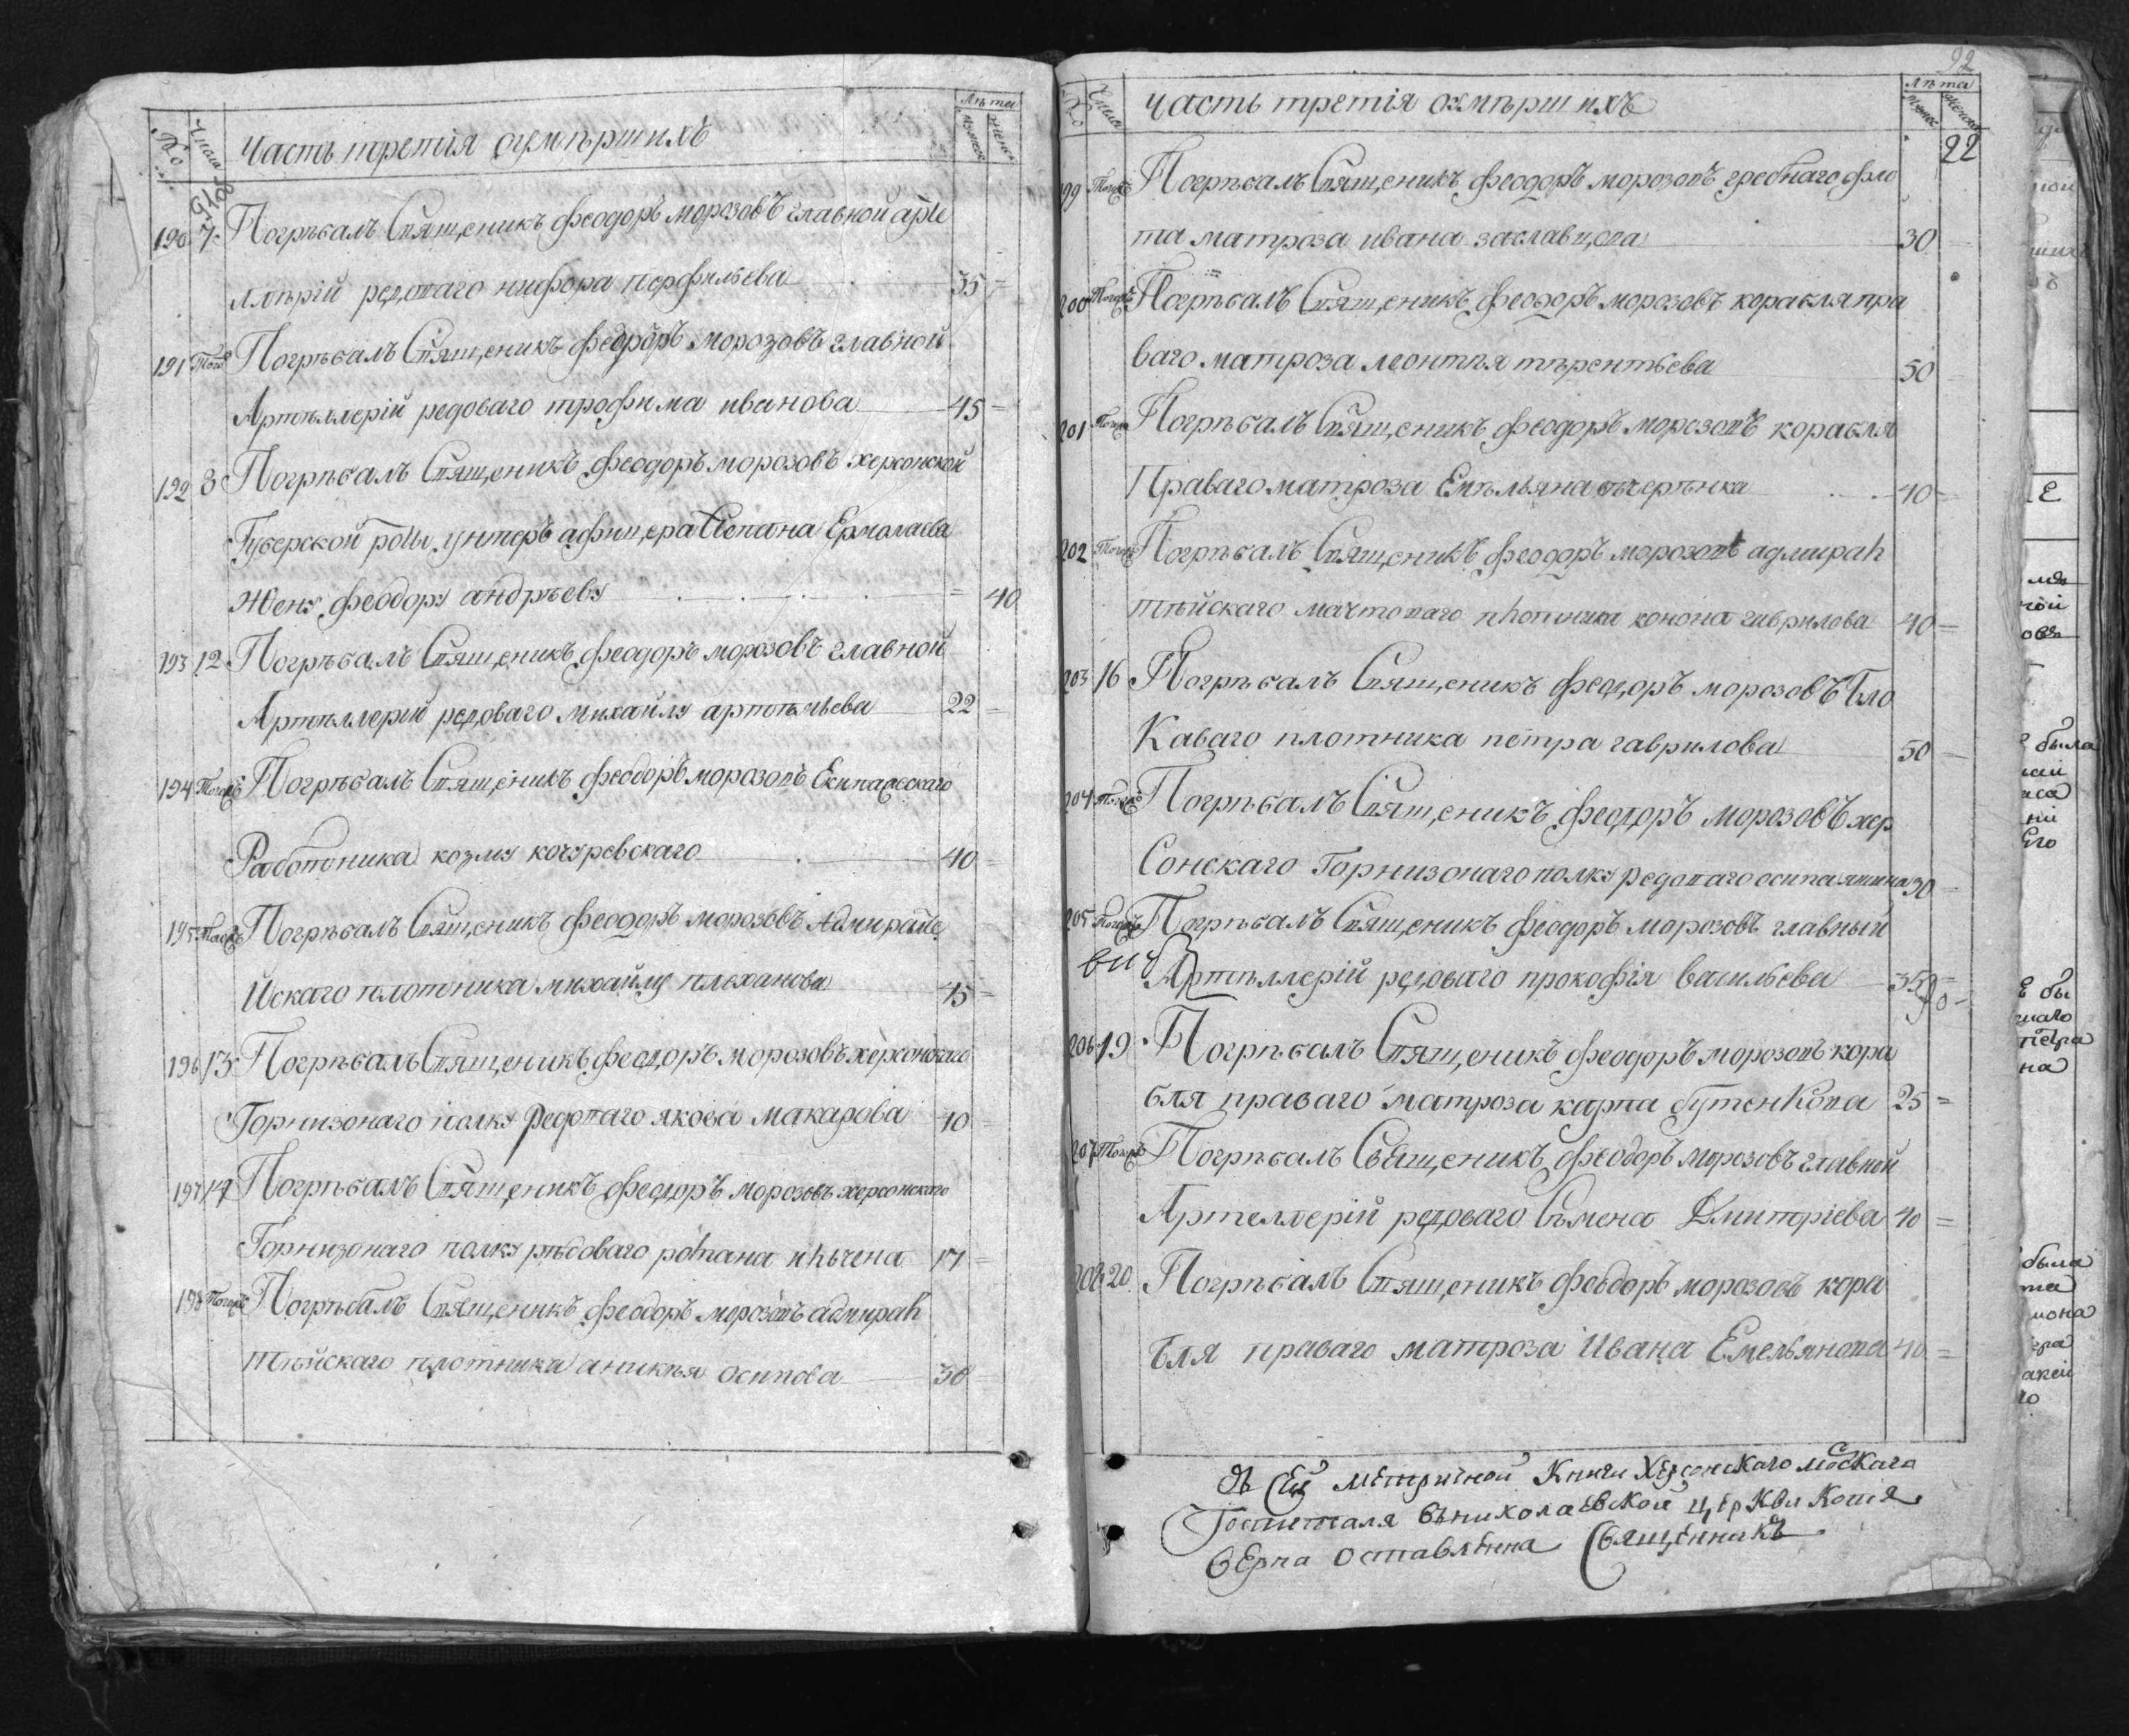 № Числа Часть третія оумѣршихъ Лѣта мужеска женска
190 7 Погрѣбалъ Священикъ феодоръ морозовъ главной арте
ллѣрій редоваго никифора перфильева 35
191 Тогоже Погрѣбалъ Священикъ феодоръ морозовъ главной
Артѣллерій редоваго трофима иванова 45
192 8 Погрѣбалъ Священикъ феодоръ морозовъ херсонской
Губерской роты унтеръ афицера Степана Ермолаева
Жену феодору андрѣеву 40
193 12 Погрѣбалъ Священикъ феодоръ морозовъ главной
Артѣллерій редоваго михайлу артѣмьева 22
194 Тогожъ Погрѣбалъ Священикъ феодоръ морозовъ
Работника козму кочуревскаго 40
195 Тогожъ Погрѣбалъ Священикъ феодоръ морозовъ Адмиралте
Йскаго плотника михайлу плеханова 45
196 13 Погрѣбалъ Священикъ феодоръ морозовъ херсонскаго
Горнизонаго полку редоваго якова макарова 40
197 14 Погрѣбалъ Священикъ феодоръ морозовъ херсонскаго
Горнизонаго полку рѣдоваго романа
198 Тогожъ Погрѣбалъ Священикъ феодоръ морозовъ адмирал
тѣйскаго плотника аникѣя осипова 30
92
№ Числа Часть третія оумѣршихъ Лѣта мужес женска
22
199 Тогожъ Погрѣбалъ Священикъ феодоръ морозовъ гребнаго фло
та матроза ивана заславцова 30
200 Тогожъ Погрѣбалъ Священикъ феодоръ морозовъ корабля пра
ваго матроза леонтия тѣрентьева 50
201 Тогожъ Погрѣбалъ Священикъ феодоръ морозовъ корабля
Праваго матроза Емѣльяна 40
202 Тогожъ Погрѣбалъ Священикъ феодоръ морозовъ адмирал
тѣйскаго мачтоваго плотника конона гаврилова 40
203 16 Погрѣбалъ Священикъ феодоръ морозовъ Бло
Каваго плотника петра гаврилова 50
204 Тогожъ Погрѣбалъ Священикъ феодоръ морозовъ хер
Сонскаго Горнизонаго полку редоваго осипа 30
205 Тогожъ Погрѣбалъ Священикъ феодоръ морозовъ главный
Артѣллерій редоваго прокофія васильева 35
206 19 Погрѣбалъ Священикъ феодоръ морозовъ кора
бля праваго матроза карпа бутенкова 25
207 Тогожъ Погрѣбалъ Священикъ феодоръ морозовъ главной
Артеллерій редоваго Сѣмена Дмитріева 40
208 20 Погрѣбалъ Священикъ феодоръ морозовъ кора
бля праваго матроза Ивана Емельянова 40
съ Сей метричной Книги Херсонскаго морскаго
Госпиталя вниколаевской церкви Копія
вЕрна Оставлѣнна Священникъ